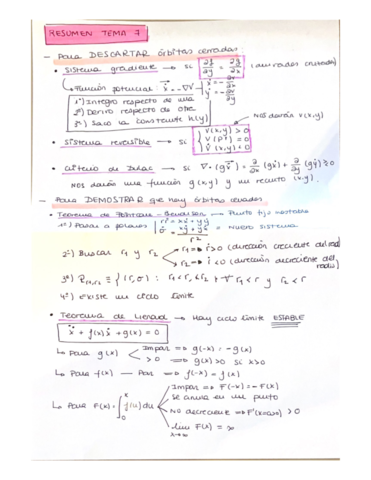 RESUMEN TEMA 7
— Para DESCARTAR órbitas cerradas:
• Sistema gradiente → si ∂f/∂y = ∂g/∂x (derivadas cruzadas)
↳ Función potencial: ẋ = -∇V ẋ = -∂V/∂x ẏ = -∂V/∂y
1º) Integro respecto de una
2º) Derivo respecto de otra
3º) Saco la constante h(y)
Nos darán V(x,y)
• Sistema reversible → si { V(x,y) > 0 V(P*) = 0 V̇(x,y) < 0
• Criterio de Dulac → si ∇·(gẋ) = ∂/∂x (gẋ) + ∂/∂y (gẏ) ≥ 0
NOS darán una función g(x,y) y un recinto (x,y).
— Para DEMOSTRAR que hay órbitas cerradas
• Teorema de Poincaré - Bendixson → Punto fijo inestable
1º) Pasar a polares { rṙ = xẋ + yẏ = Nuevo sistema
r²
2º) Buscar r₁ y r₂ r₁ ⇒ ṙ > 0 (dirección creciente del radio)
r₂ ⇒ ṙ < 0 (dirección decreciente del radio)
3º) R r₁,r₂ = {(r,σ) : r₁ < r < r₂ + ∀ r₁ < r y r₂ < r
4º) Existe un ciclo límite
• Teorema de Lienard → Hay ciclo límite ESTABLE
ẍ + f(x)ẋ + g(x) = 0
↳ Para g(x) Impar ⇒ g(-x) = -g(x)
> 0 ⇒ g(x) > 0 si x > 0
↳ Para f(x) — Par ⇒ f(-x) = f(x)
Impar ⇒ F(-x) = -F(x)
Se anula en un punto
↳ Para F(x) = ∫₀ˣ f(u) du
NO decreciente ⇒ F'(x→∞) > 0
lim x→∞ F(x) = ∞